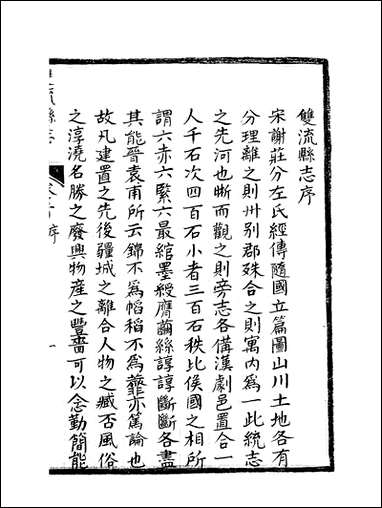 雙流縣志序
宋謝莊分左氏經傳隨國立篇圖山川土地各有
分理離之則卅別郡殊合之則寓內為一此統志
之先河也晰而觀之則旁志各備漢劇邑置合一
人千石次四百石小者三百石秩比侯國之相所
謂六赤六緊六最綰墨綬膺繭絲諄諄斷斷各盡
其能晉袁甫所云錦不為幍稻不為虀亦篤論也
故凡建置之先後疆域之離合人物之臧否風俗
之淳澆名勝之廢興物産之豐嗇可以念勤簡能
序
一